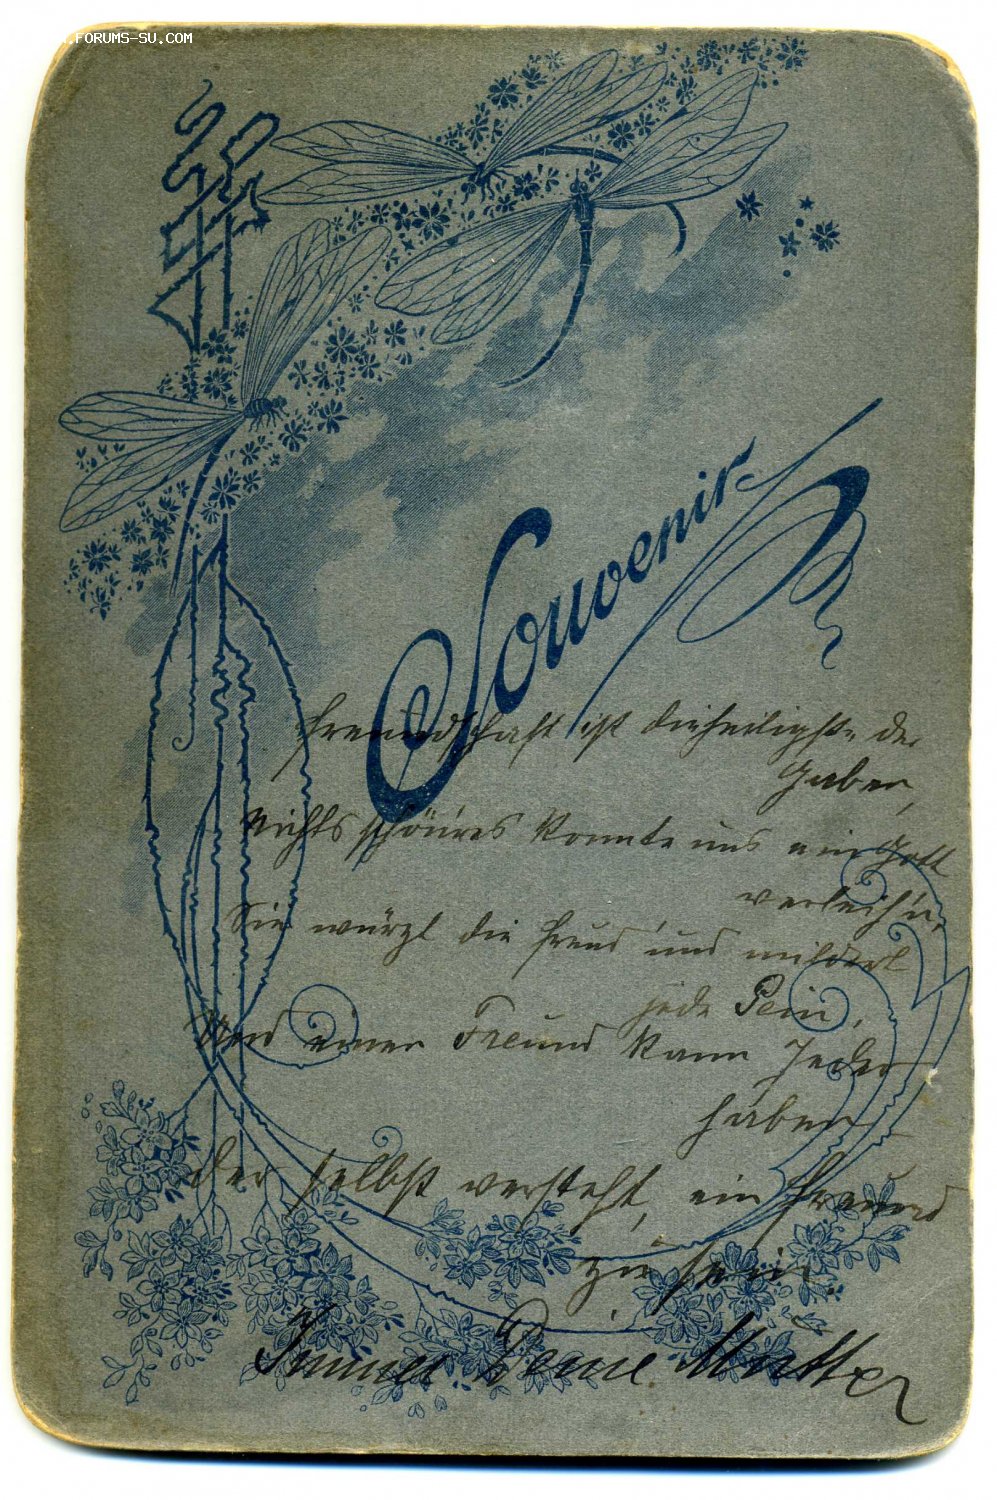 .FORUMS-SU.COM
Souvenir
Freundschaft ist die heiligste der
Gaben,
Nichts schön'res konnte uns ein Gott
verleih'n,
Sie würzt die Freud' und mildert
jede Pein,
Und einen Freund kann Jeder
haben
Der selbst versteht, ein Freund
zu sein.
Immer Deine Mutter